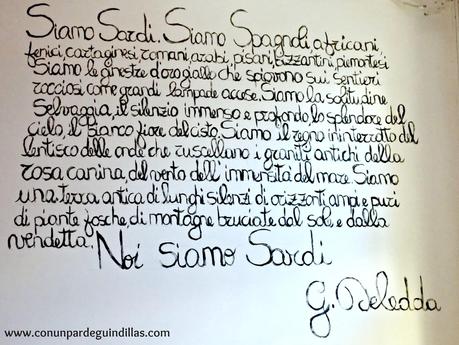 Siamo Sardi. Siamo Spagnoli, africani,
fenici, cartaginesi, romani, arabi, pisani, bizzantini, piemontesi
Siamo le ginestre d'oro giallo che spiovono sui sentieri
rocciosi come grandi lampade accese. Siamo la solitudine
selvaggia, il silenzio immenso e profondo lo splendore del
cielo, il bianco fiore del cisto. Siamo il regno ininterrotto del
lentisco delle onde che ruscellano i graniti antichi della
rosa canina del vento dell'immensità del mare. Siamo
una terra antica di lunghi silenzi di orizzonti ampi e puri
di piante fosche, di montagne bruciate dal sole e dalla
vendetta.
Noi siamo Sardi
G. Deledda
www.conunpardeguindillas.com